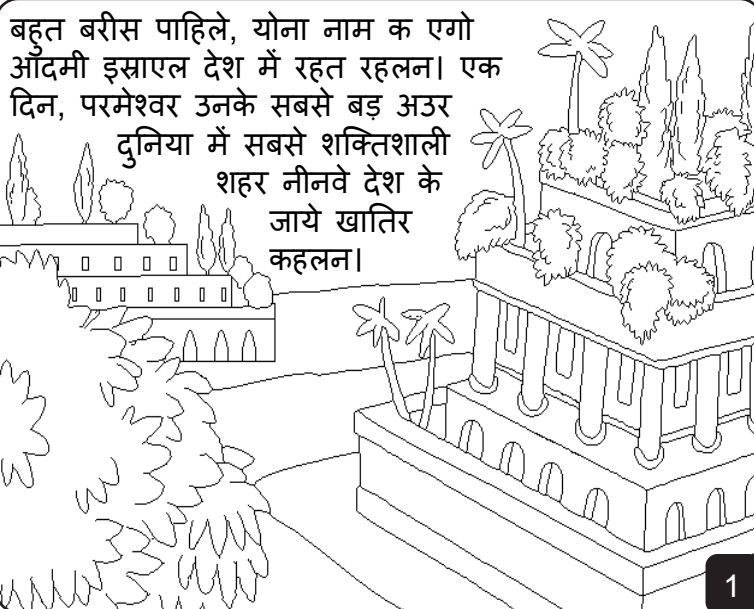 बहुत बरीस पाहिले, योना नाम क एगो
आदमी इस्राएल देश में रहत रहलन। एक
दिन, परमेश्वर उनके सबसे बड़ अउर
दुनिया में सबसे शक्तिशाली
शहर नीनवे देश के
जाये खातिर
कहलन।
1